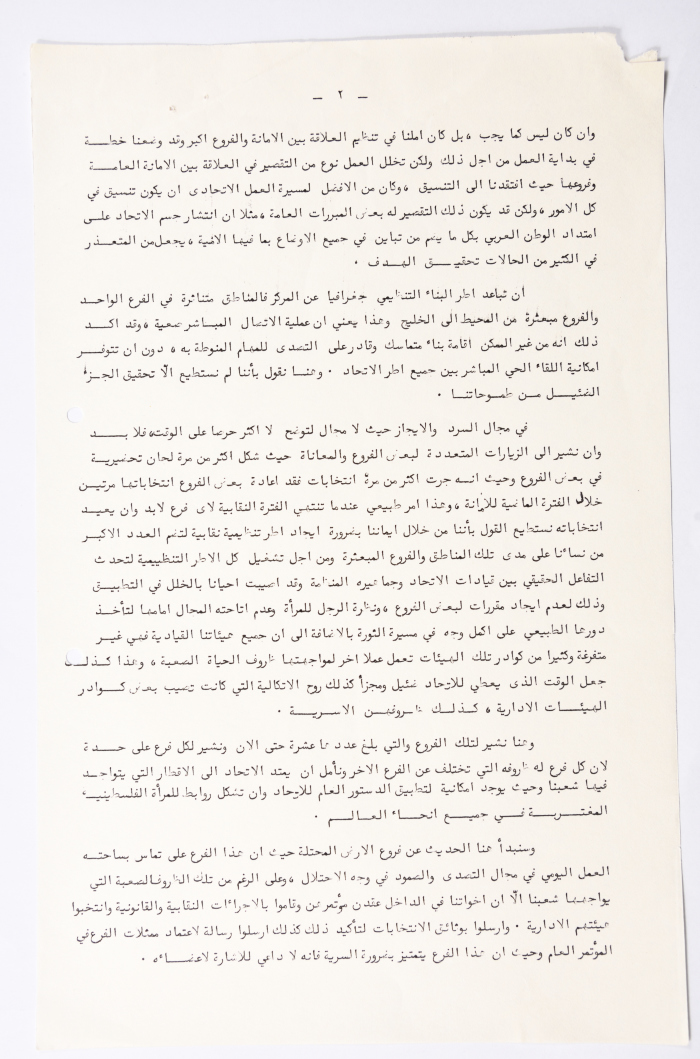 — ٢ —
وان كان ليس كما يجب ، بل كان املنا في تنظيم العلاقة بين الامانة والفروع اكبر وقد وضعنا خطة
في بداية العمل من اجل ذلك ولكن تخلل العمل نوع من التقصير في العلاقة بين الامانة العامة
وفروعها حيث افتقدنا الى التنسيق ، وكان من الافضل لمسيرة العمل الاتحادى ان يكون تنسيق في
كل الامور ، ولكن قد يكون ذلك التقصير له بعض المبررات العامة ، مثلا ان انتشار جسم الاتحاد على
امتداد الوطن العربي بكل ما يضم من تباين في جميع الاوضاع بما فيها الامنية ، يجعل من المتعذر
في الكثير من الحالات تحقيق الهدف .
أن تباعد اطر البناء التنظيمي جغرافيا عن المركز فالمناطق متناثرة في الفرع الواحد
والفروع مبعثرة من المحيط الى الخليج وهذا يعني ان عملية الاتصال المباشر صعبة ، وقد اكد
ذلك انه من غير الممكن اقامة بناء متماسك وقادر على التصدى للمهام المنوطة به ، دون ان تتوفر
امكانية اللقاء الحي المباشر بين جميع اطر الاتحاد . وهنا نقول بأننا لم نستطيع الّا تحقيق الجزء
الضئيل من طموحاتنا .
في مجال السرد والايجاز حيث لا مجال لتوضح لا اكثر حرصا على الوقت ، فلا بد
وان نشير الى الزيارات المتعددة لبعض الفروع والمعاناة حيث شكل اكثر من مرة لجان تحضيرية
في بعض الفروع وحيث انه جرت اكثر من مرة انتخابات فقد اعادة بعض الفروع انتخاباتها مرتين
خلال الفترة الماضية للامانة ، وهذا امر طبيعي عندما تنتهي الفترة النقابية لاى فرع لابد وان يعيد
انتخاباته نستطيع القول بأننا من خلال ايماننا بضرورة ايجاد اطر تنظيمية نقابية لتضم العدد الاكبر
من نسائنا على مدى تلك المناطق والفروع المبعثرة ومن اجل تشغيل كل الاطر التنظيمية لتحدث
التفاعل الحقيقي بين قيادات الاتحاد وجماهيره المنظمة وقد اصيبت احيانا بالخلل في التطبيق
وذلك لعدم ايجاد مقررات لبعض الفروع ، ونظرة الرجل للمرأة وعدم اتاحته المجال امامها لتأخذ
دورها الطبيعي على اكمل وجه في مسيرة الثورة بالاضافة الى ان جميع هيئاتنا القيادية فهي غير
متفرغة وكثيرا من كوادر تلك الهيئات تعمل عملا اخر لمواجهتها ظروف الحياة الصعبة ، وهذا كذلك
جعل الوقت الذى يعطي للاتحاد ضئيل ومجزأ كذلك روح الاتكالية التي كانت تصيب بعض كوادر
الهيئات الادارية ، كذلك ظروفهن الاسرية .
وهنا نشير لتلك الفروع والتي بلغ عددها عشرة حتى الان ونشير لكل فرع على حدة
لان كل فرع له ظروفه التي تختلف عن الفرع الاخر ونأمل ان يمتد الاتحاد الى الاقطار التي يتواجد
فيها شعبنا وحيث يوجد امكانية لتطبيق الدستور العام للايحاد وان تشكل روابط للمرأة الفلسطينية
المغتربة في جميع انحاء العالم .
وسنبدأ هنا الحديث عن فروع الارض المحتلة حيث ان هذا الفرع على تماس بساحته
العمل اليومي في مجال التصدى والصمود في وجه الاحتلال ، وعلى الرغم من تلك الظروف الصعبة التي
يواجهها شعبنا الّا ان اخواتنا في الداخل عقدن مؤتمرهن وقاموا بالاجراءات النقابية والقانونية وانتخبوا
هيئتهم الادارية . وارسلوا بوثائق الانتخابات لتأكيد ذلك كذلك ارسلوا رسالة لاعتماد ممثلات الفرع في
المؤتمر العام وحيث ان هذا الفرع يتمتيز بضرورة السرية فانه لا داعي للاشارة لاعضائه .